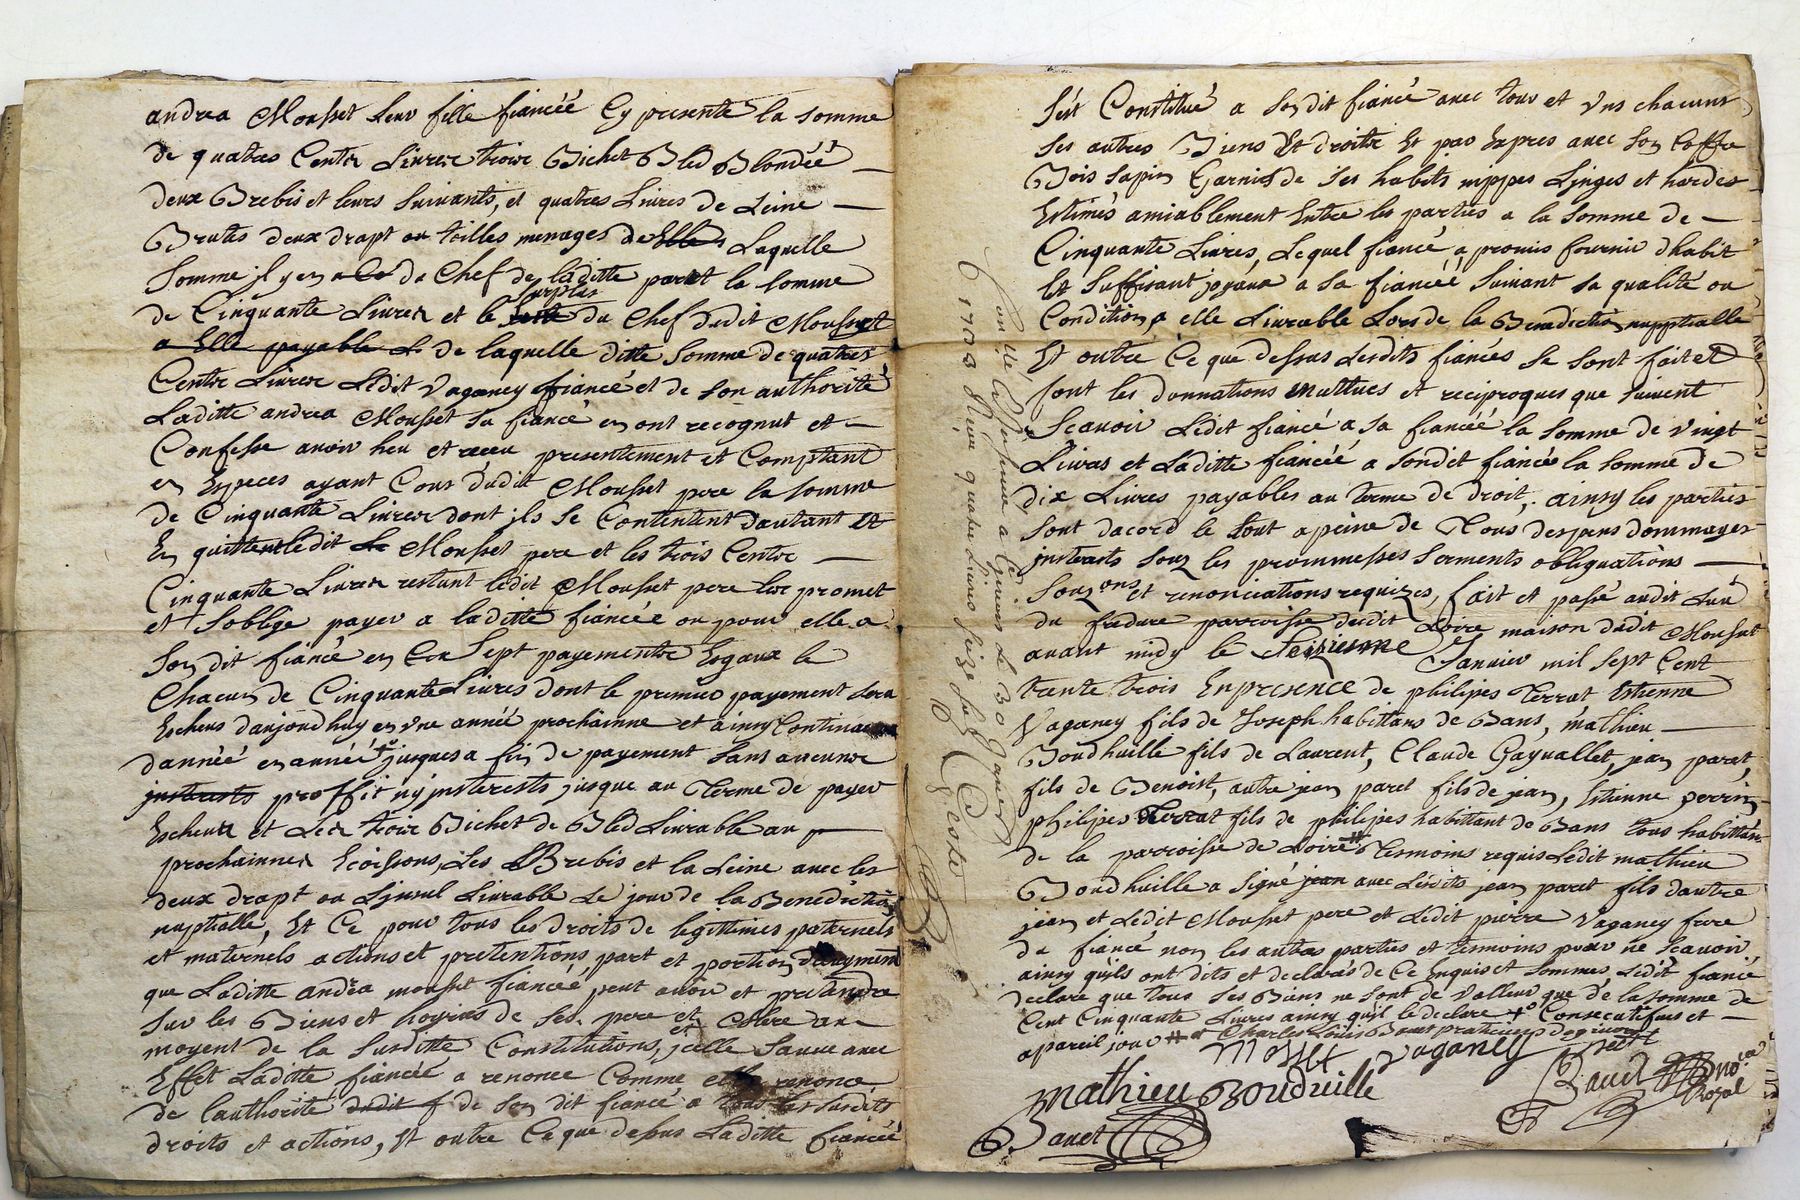 andrea Mousset leur fille fiancéé Cy presente la somme
de quatres Cents Livres trois Bichet Bled Blondéé
deux Brebis et leurs suivants, et quatres Livres de Leine
Brutes deux drapt ou toilles menages de Elle Laquelle
Somme il y en a de Chef de laditte paret la somme
de Cinquante Livres et le surplus du Chef dudit Mousset
a Elle payable de laquelle ditte somme de quatres
Cents Livres Ledit Vaganey fiancé et de son authorité
Laditte andrea Mousset sa fiancé en ont recognut et
Confesse avoir heu et receu presentement et Comptant
en Especes ayant Cour dudit Mousset pere la somme
de Cinquante Livres dont ils se Contentent dautant et
En quittent ledit Mousset pere et les trois Cents
Cinquante Livres restant ledit Mousset pere les promet
et soblige payer a laditte fiancéé ou pour elle a
Son dit fiancé en Sept payements Esgaux le
Chacun de Cinquante Livres dont le premier payement sera
Escheus daujourdhuy en une année prochainne et ainsy Continuer
dannéé en annéé jusques a fin de payement sans aucuns
justerests proffit ny justerests jusque au Terme de payer
Escheus et Les trois Bichet de Bled Livrable au
prochainnes Ecoissons, Les Brebis et la Leine avec les
deux drapt ou Linsul Livrable Le jour de la Benediction
nuptialle, Et Ce pour tous les droits de legittimes paternels
et maternels actions et pretentions part et portion daugment
que Laditte andréa mousset fiancéé peut avoir et pretandre
sur les Biens et hoyries de ses pere et Mere au
moyent de la susditte Constitutions, jcelle sauve avec
Effet Laditte fiancéé a renonce Comme elle renonce
de lauthorité dudit f de son dit fiancé a tous les susdits
droits et actions, Et outre Ce que dessus Laditte fiancéé
s'est Constitué a sondit fiancé avec tous et uns chacuns
ses autres Biens Et droits Et pas Expres avec son Coffre
Bois sapin Garnis de ses habits nippes Linges et hardes
Estimés amiablement Entre les parties a la somme de
Cinquante Livres, Lequel fiancé a promis fournir dhabit
Et suffisant joyaux a sa fiancéé suivant sa qualité ou
Condition a elle Livrable Lors de la Benediction nupptialle
Et outre Ce que dessus Lesdits fiancés se sont fait et
font les donnations muttues et reciproques que suivent
Scavoir Ledit fiancé a sa fiancéé la somme de vingt
Livres et Laditte fiancéé a sondit fiancé la somme de
dix Livres payables au terme de droit, ainsy les parties
sont dacord le tout a peine de Tous despens dommages
justerests souz les prommesses serments obliguations
souz.ons et renonciations requizes, fait et passé audit lieu
du fredure parroisse dudit Loire maison dudit Mousset
avant midy le Seizieme Janvier mil sept Cent
trente trois En presence de philipes Terrat Estienne
Vaganey fils de Joseph habittans de Bans, mathieu
Boudhuille fils de Laurent, Claude Gayvallet, jean paret,
fils de Benoist, autre jean paret fils de jean, Estienne perrin
philipes Terrat fils de philipes habittant de Bans tous habittans
de la parroisse de Loire Tesmoins requis Ledit mathieu
Boudhuille a signé jean avec Lesdits jean paret fils dautre
jean et Ledit Mousset pere et Ledit pierre Vaganey frere
du fiancé non les autres parties et temoins pour ne scavoir
ainsy quils ont dits et declarés de Ce Enquis et sommes Ledit fiancé
declare que tous ses Biens ne sont de valleur que de la somme de
Cent Cinquante Livres ainsy quil le declare Consecutifues et
apareil jour Charles Louis Banet praticien de givors
Mosset Vaganey Paret
Mathieu Bouduille
Banet
Banet no.re Royal
Con.llé Et Insinué a Givors Le 30 Janvier
1733 Reçu quatre Livres seize sols
Geste